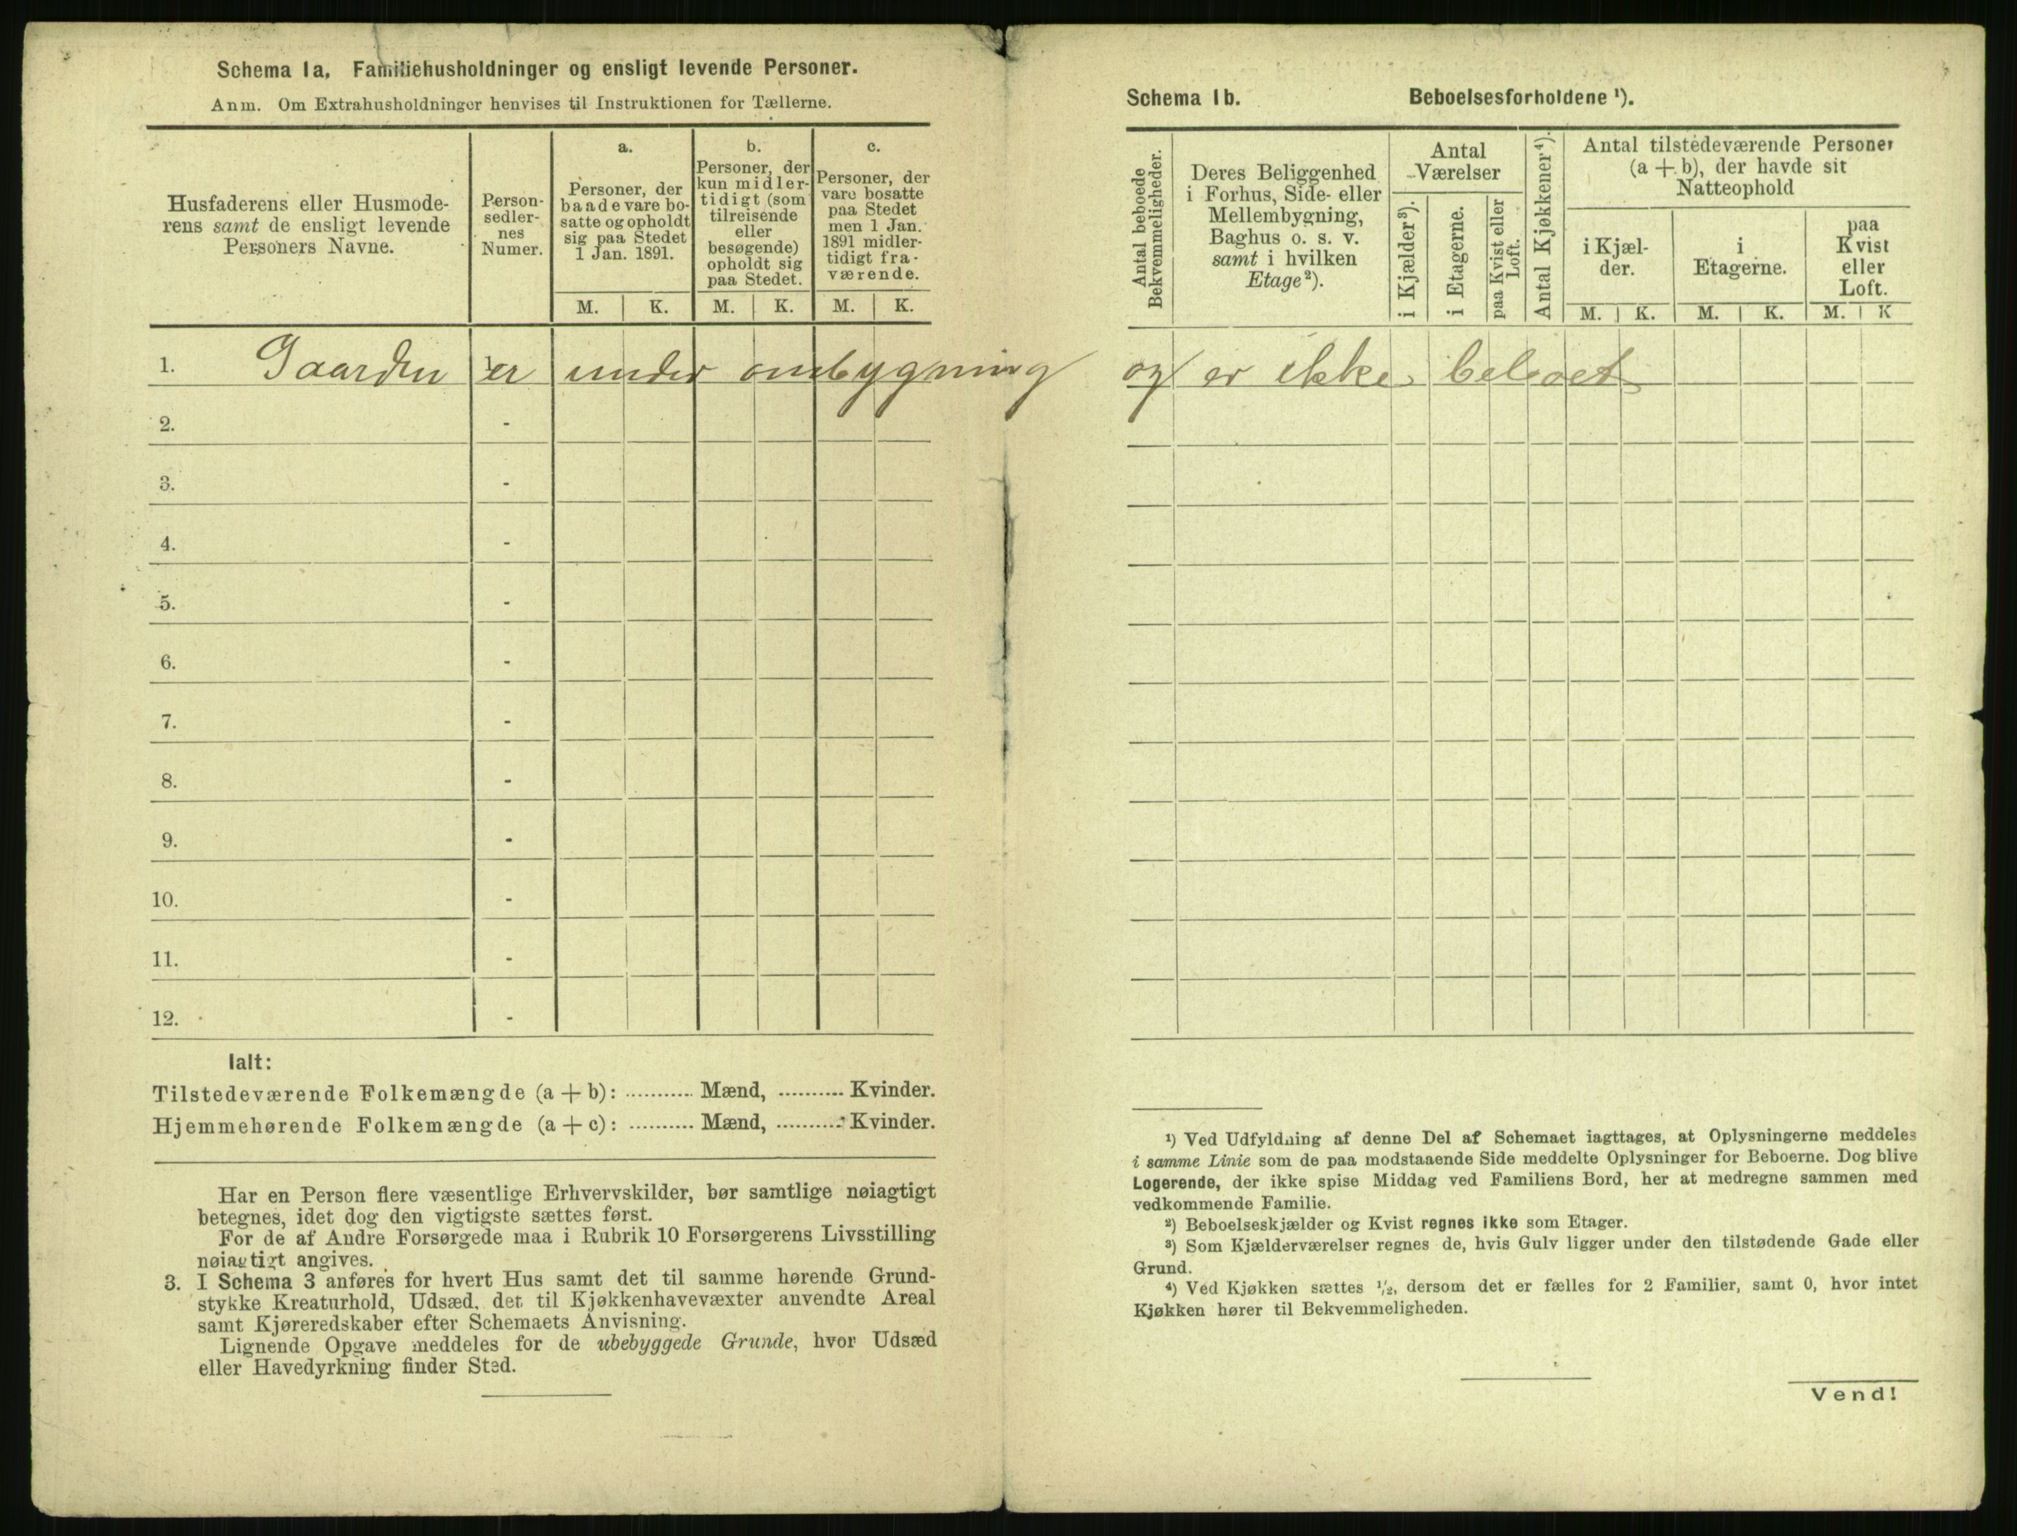 Schema 1a. Familiehusholdninger og ensligt levende Personer.
Anm. Om Extrahusholdninger henvises til Instruktionen for Tællerne.
Husfaderens eller Husmode-
rens samt de ensligt levende
Personers Navne.
Person-
sedler-
nes
Numer.
a.
Personer, der
baade vare bo-
satte og opholdt
sig paa Stedet
1 Jan. 1891.
M. K.
b.
Personer, der
kun midler-
tidigt (som
tilreisende
eller
besøgende)
opholdt sig
paa Stedet.
M. K.
c.
Personer, der
vare bosatte
paa Stedet
men 1 Jan.
1891 midler-
tidigt fra-
værende.
M. K.
1. Gaarden er under ombygning og er ikke beboet
2. -
3. -
4. -
5. -
6. -
7. -
8. -
9. -
10. -
11. -
12. -
Ialt:
Tilstedeværende Folkemængde (a + b): ........... Mænd, ........... Kvinder.
Hjemmehørende Folkemængde (a + c): ........... Mænd, ........... Kvinder.
Har en Person flere væsentlige Erhvervskilder, bør samtlige nøiagtigt
betegnes, idet dog den vigtigste sættes først.
For de af Andre Forsørgede maa i Rubrik 10 Forsørgerens Livsstilling
nøiagtigt angives.
3. I Schema 3 anføres for hvert Hus samt det til samme hørende Grund-
stykke Kreaturhold, Udsæd, det til Kjøkkenhavevæxter anvendte Areal
samt Kjøreredskaber efter Schemaets Anvisning.
Lignende Opgave meddeles for de ubebyggede Grunde, hvor Udsæd
eller Havedyrkning finder Sted.
Schema 1b. Beboelsesforholdene ¹).
Antal beboede
Bekvemmeligheder.
Deres Beliggenhed
i Forhus, Side- eller
Mellembygning,
Baghus o. s. v.
samt i hvilken
Etage ²).
Antal
Værelser
i Kjælder ³).
i Etagerne.
paa Kvist eller
Loft.
Antal Kjøkkener ⁴).
Antal tilstedeværende Personer
(a + b), der havde sit
Natteophold
i Kjæl-
der.
i
Etagerne.
paa
Kvist
eller
Loft.
M. K. M. K. M. K
¹) Ved Udfyldning af denne Del af Schemaet iagttages, at Oplysningerne meddeles
i samme Linie som de paa modstaaende Side meddelte Oplysninger for Beboerne. Dog blive
Logerende, der ikke spise Middag ved Familiens Bord, her at medregne sammen med
vedkommende Familie.
²) Beboelseskjælder og Kvist regnes ikke som Etager.
³) Som Kjælderværelser regnes de, hvis Gulv ligger under den tilstødende Gade eller
Grund.
⁴) Ved Kjøkken sættes ½, dersom det er fælles for 2 Familier, samt 0, hvor intet
Kjøkken hører til Bekvemmeligheden.
Vend!